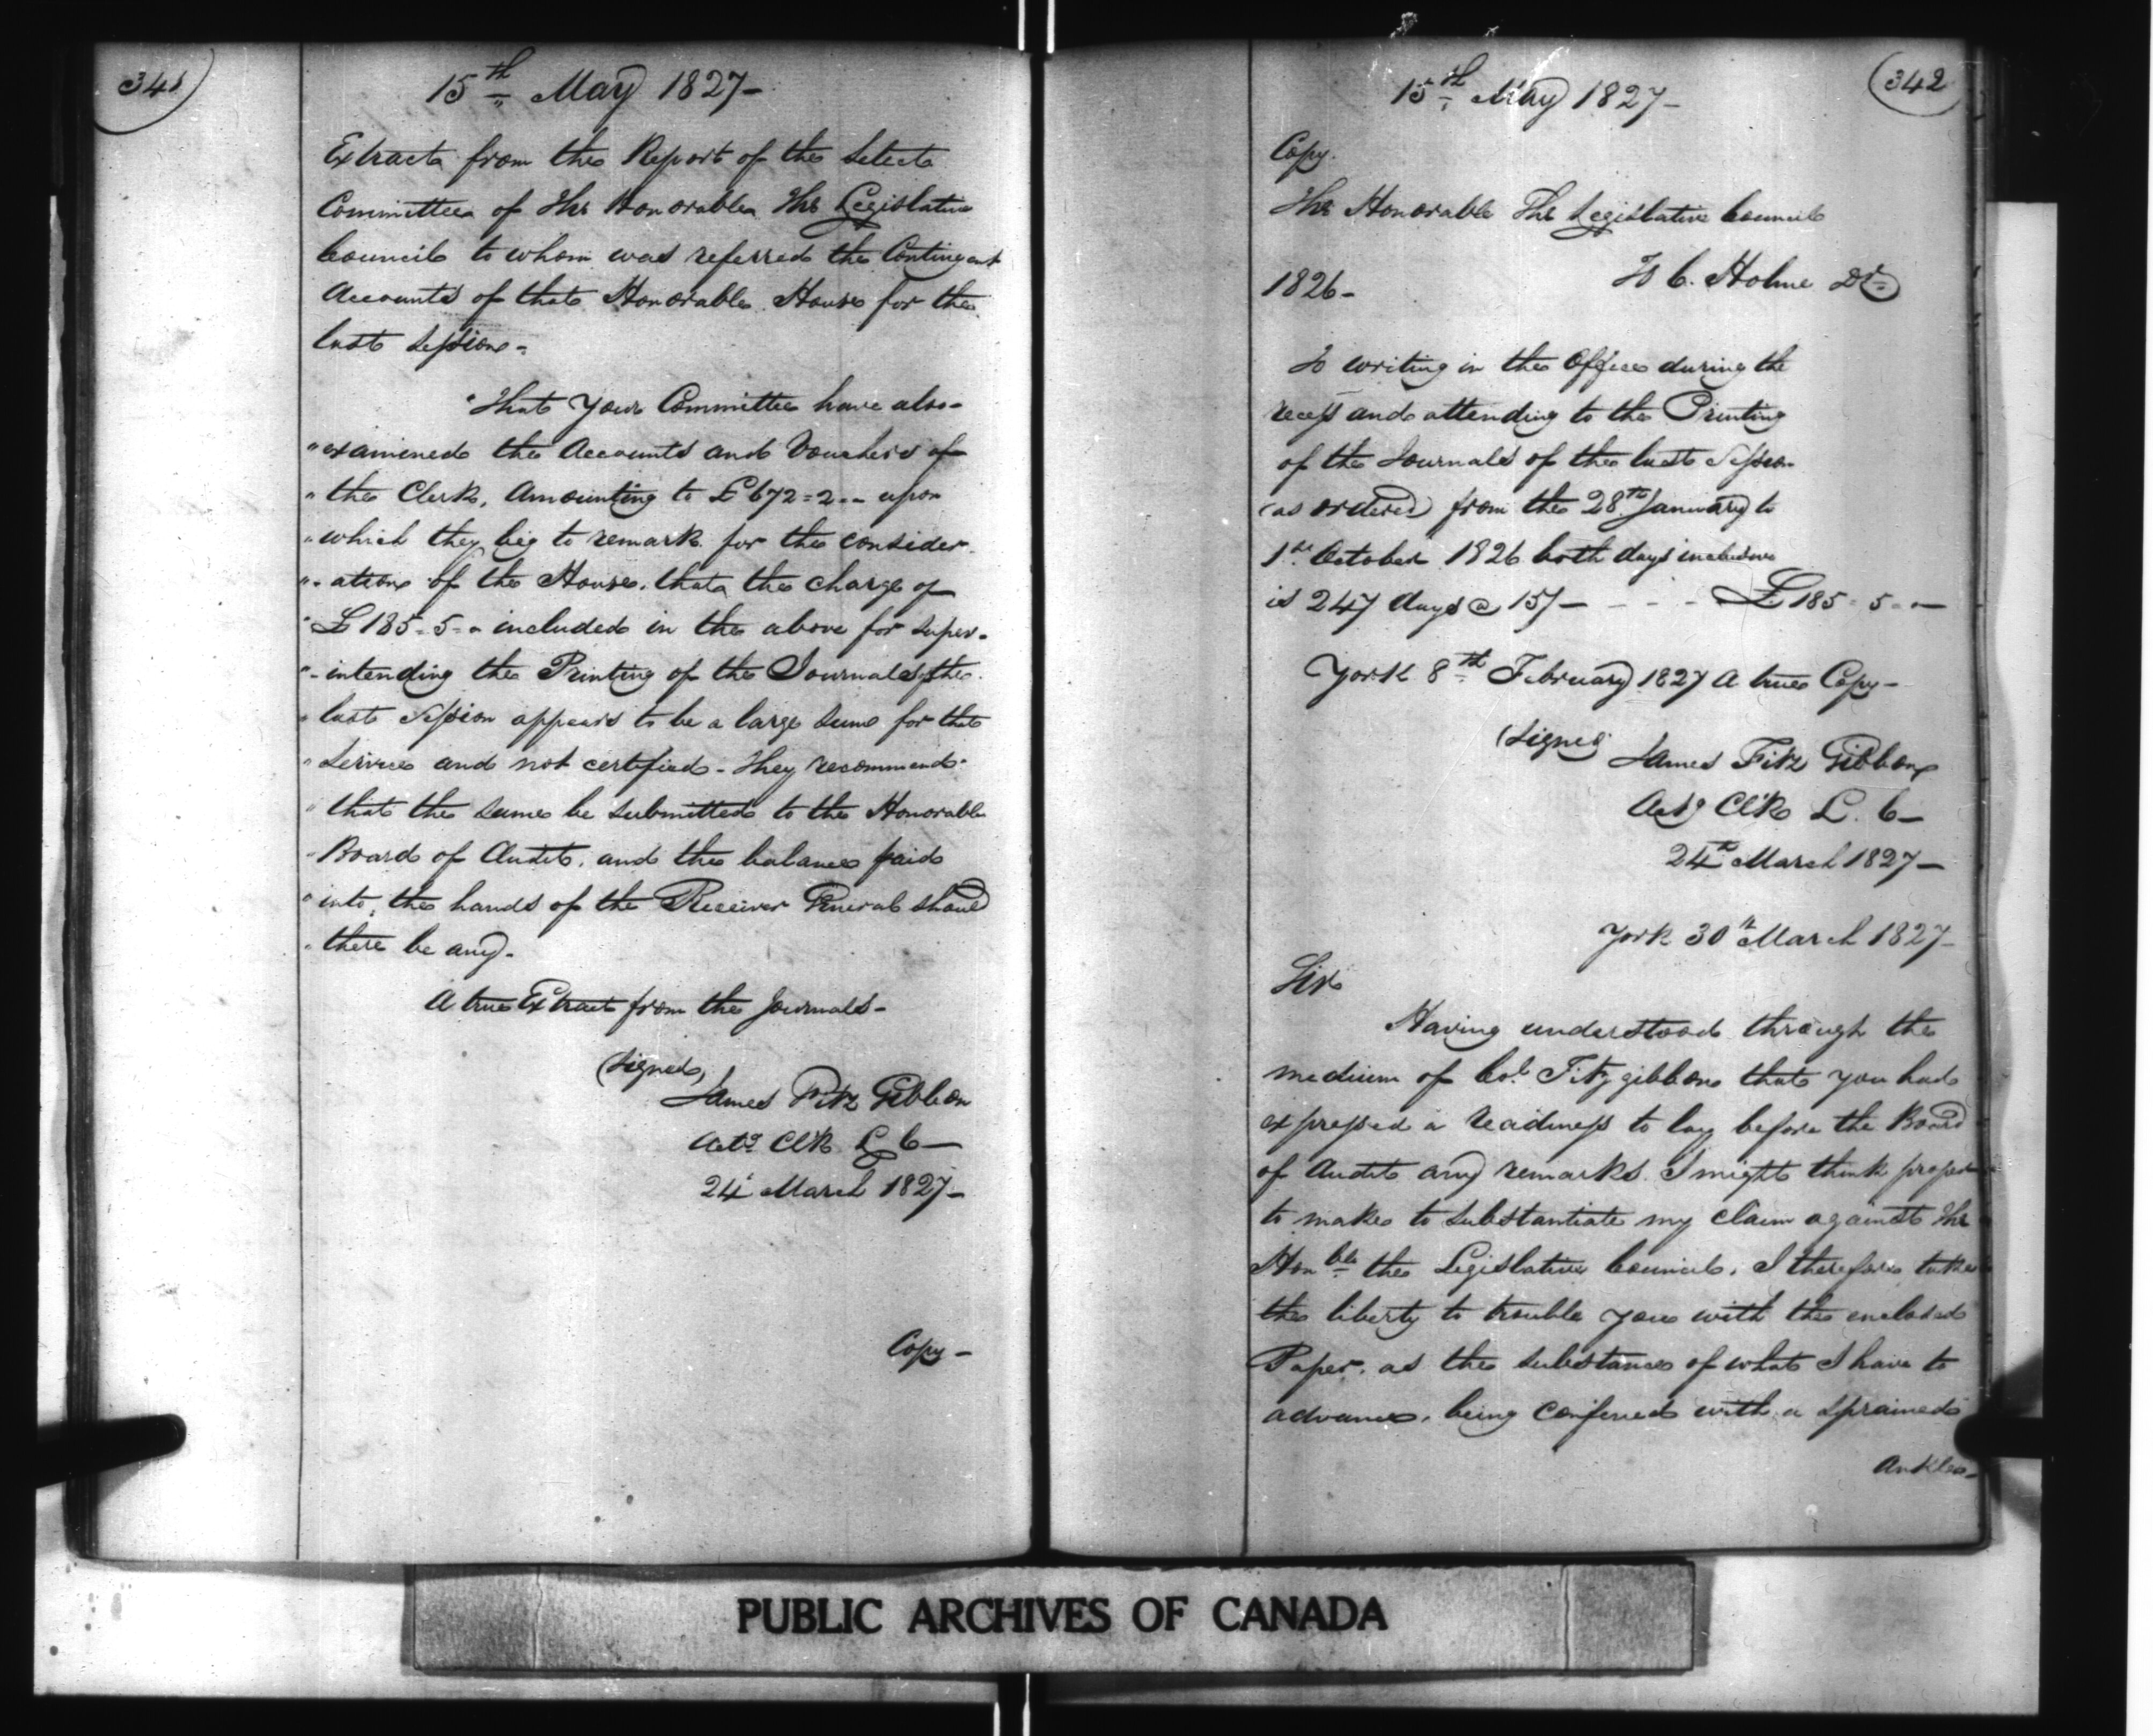 341
15th May 1827-
Extract from the Report of the Select
Committee of The Honorable The Legislative
Council to whom was referred the Contingent
Accounts of that Honorable House for the
last Session-
"That Your Committee have also-
"examined the Accounts and Vouchers of
"the Clerk, Amounting to £672=2-- upon
"which they beg to remark for the consider-
"-ation of the House, that the charge of
"£185=5=- included in the above for super-
"-intending the Printing of the Journals of the
"last Session appears to be a large sum for that
"Service and not certified- They recommend-
"that the same be submitted to the Honorable
"Board of Audit, and the balance paid
"into the hands of the Receiver General should
"there be any-
A true Extract from the Journals-
(Signed)
James Fitz Gibbon
Actg Clk L C-
24 March 1827-
Copy-
342
15th May 1827-
Copy.
The Honorable The Legislative Council
1826- To C. Holme Dr
To writing in the Office during the
recess and attending to the Printing
of the Journals of the last Session
(as ordered) from the 28th January to
1st October 1826 both days inclusive
is 247 days @ 15/- - - - £185=5=-
York 8th February 1827 A true Copy-
(Signed
James Fitz Gibbon
Actg Clk L. C-
24th March 1827-
York 30th March 1827-
Sir
Having understood through the
medium of Col. Fitzgibbon that you had
expressed a readiness to lay before the Board
of Audit any remarks I might think proper
to make to substantiate my claim against The
Honble the Legislative Council, I therefore take
the liberty to trouble you with the enclosed
Paper, as the substance of what I have to
advance, being confined with a sprained
Ankle-
PUBLIC ARCHIVES OF CANADA